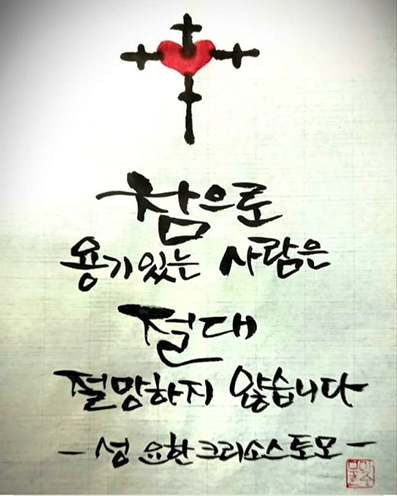 참으로
용기있는 사람은
절대
절망하지 않습니다
- 성 요한크리소스토모 -